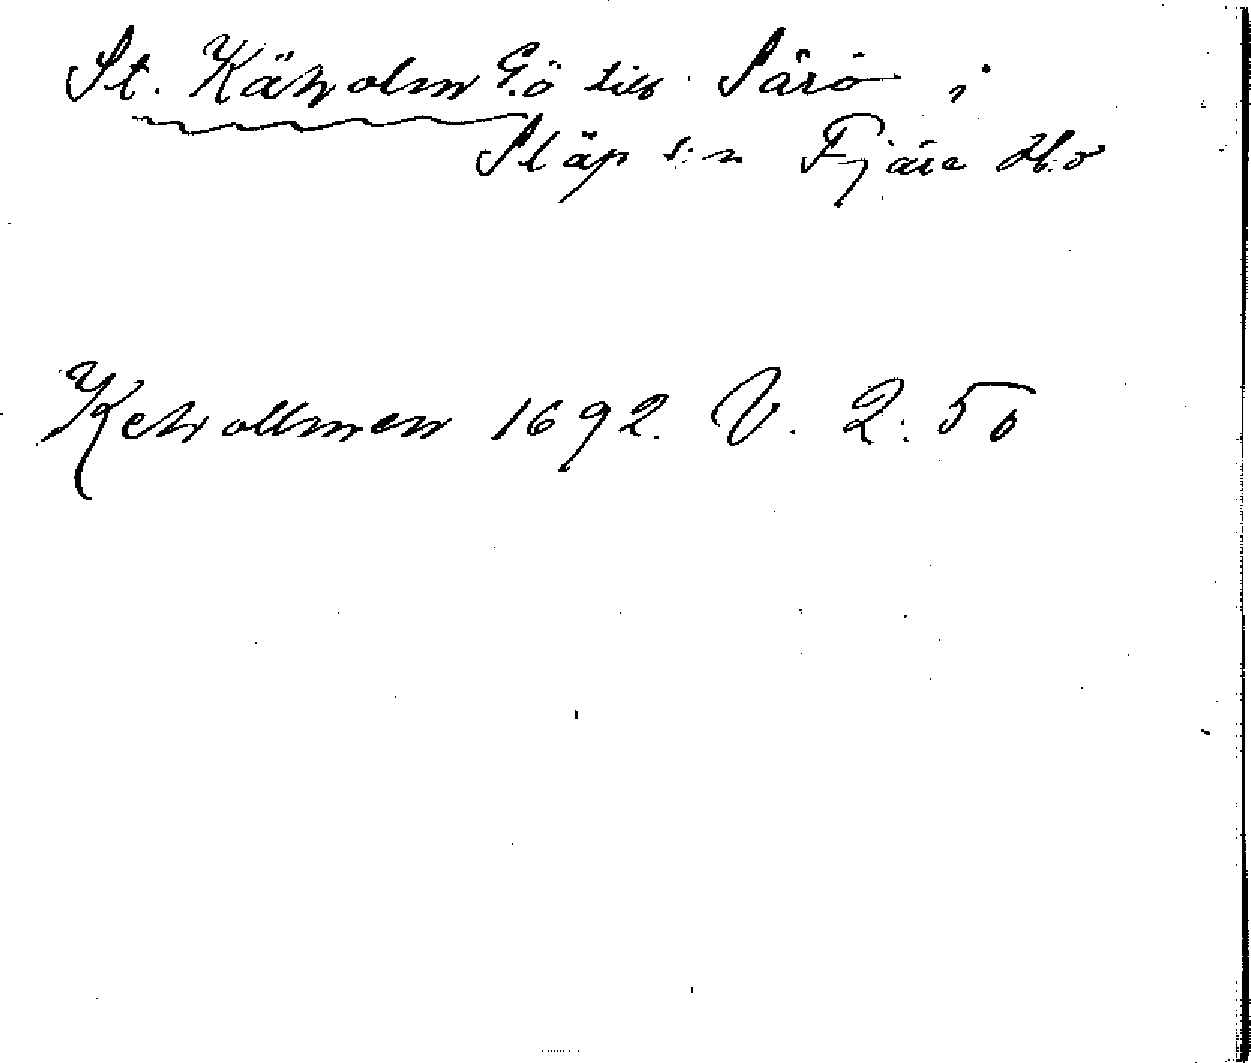 St. Kähholm Ö till Särö i
Släp s:n Fjäre Hd
Kehollmen 1692. V. 2: 50